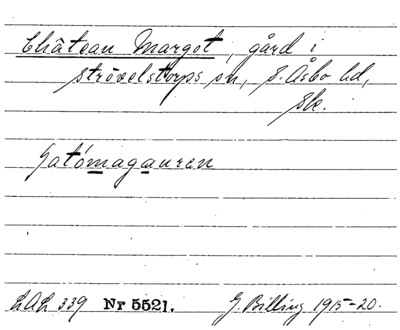 Château Margot, gård i
Strövelstorps sn, S. Åsbo hd,
Sk.
Satómagauren
LAL 339 Nr 5521. G. Billing 1915-20.